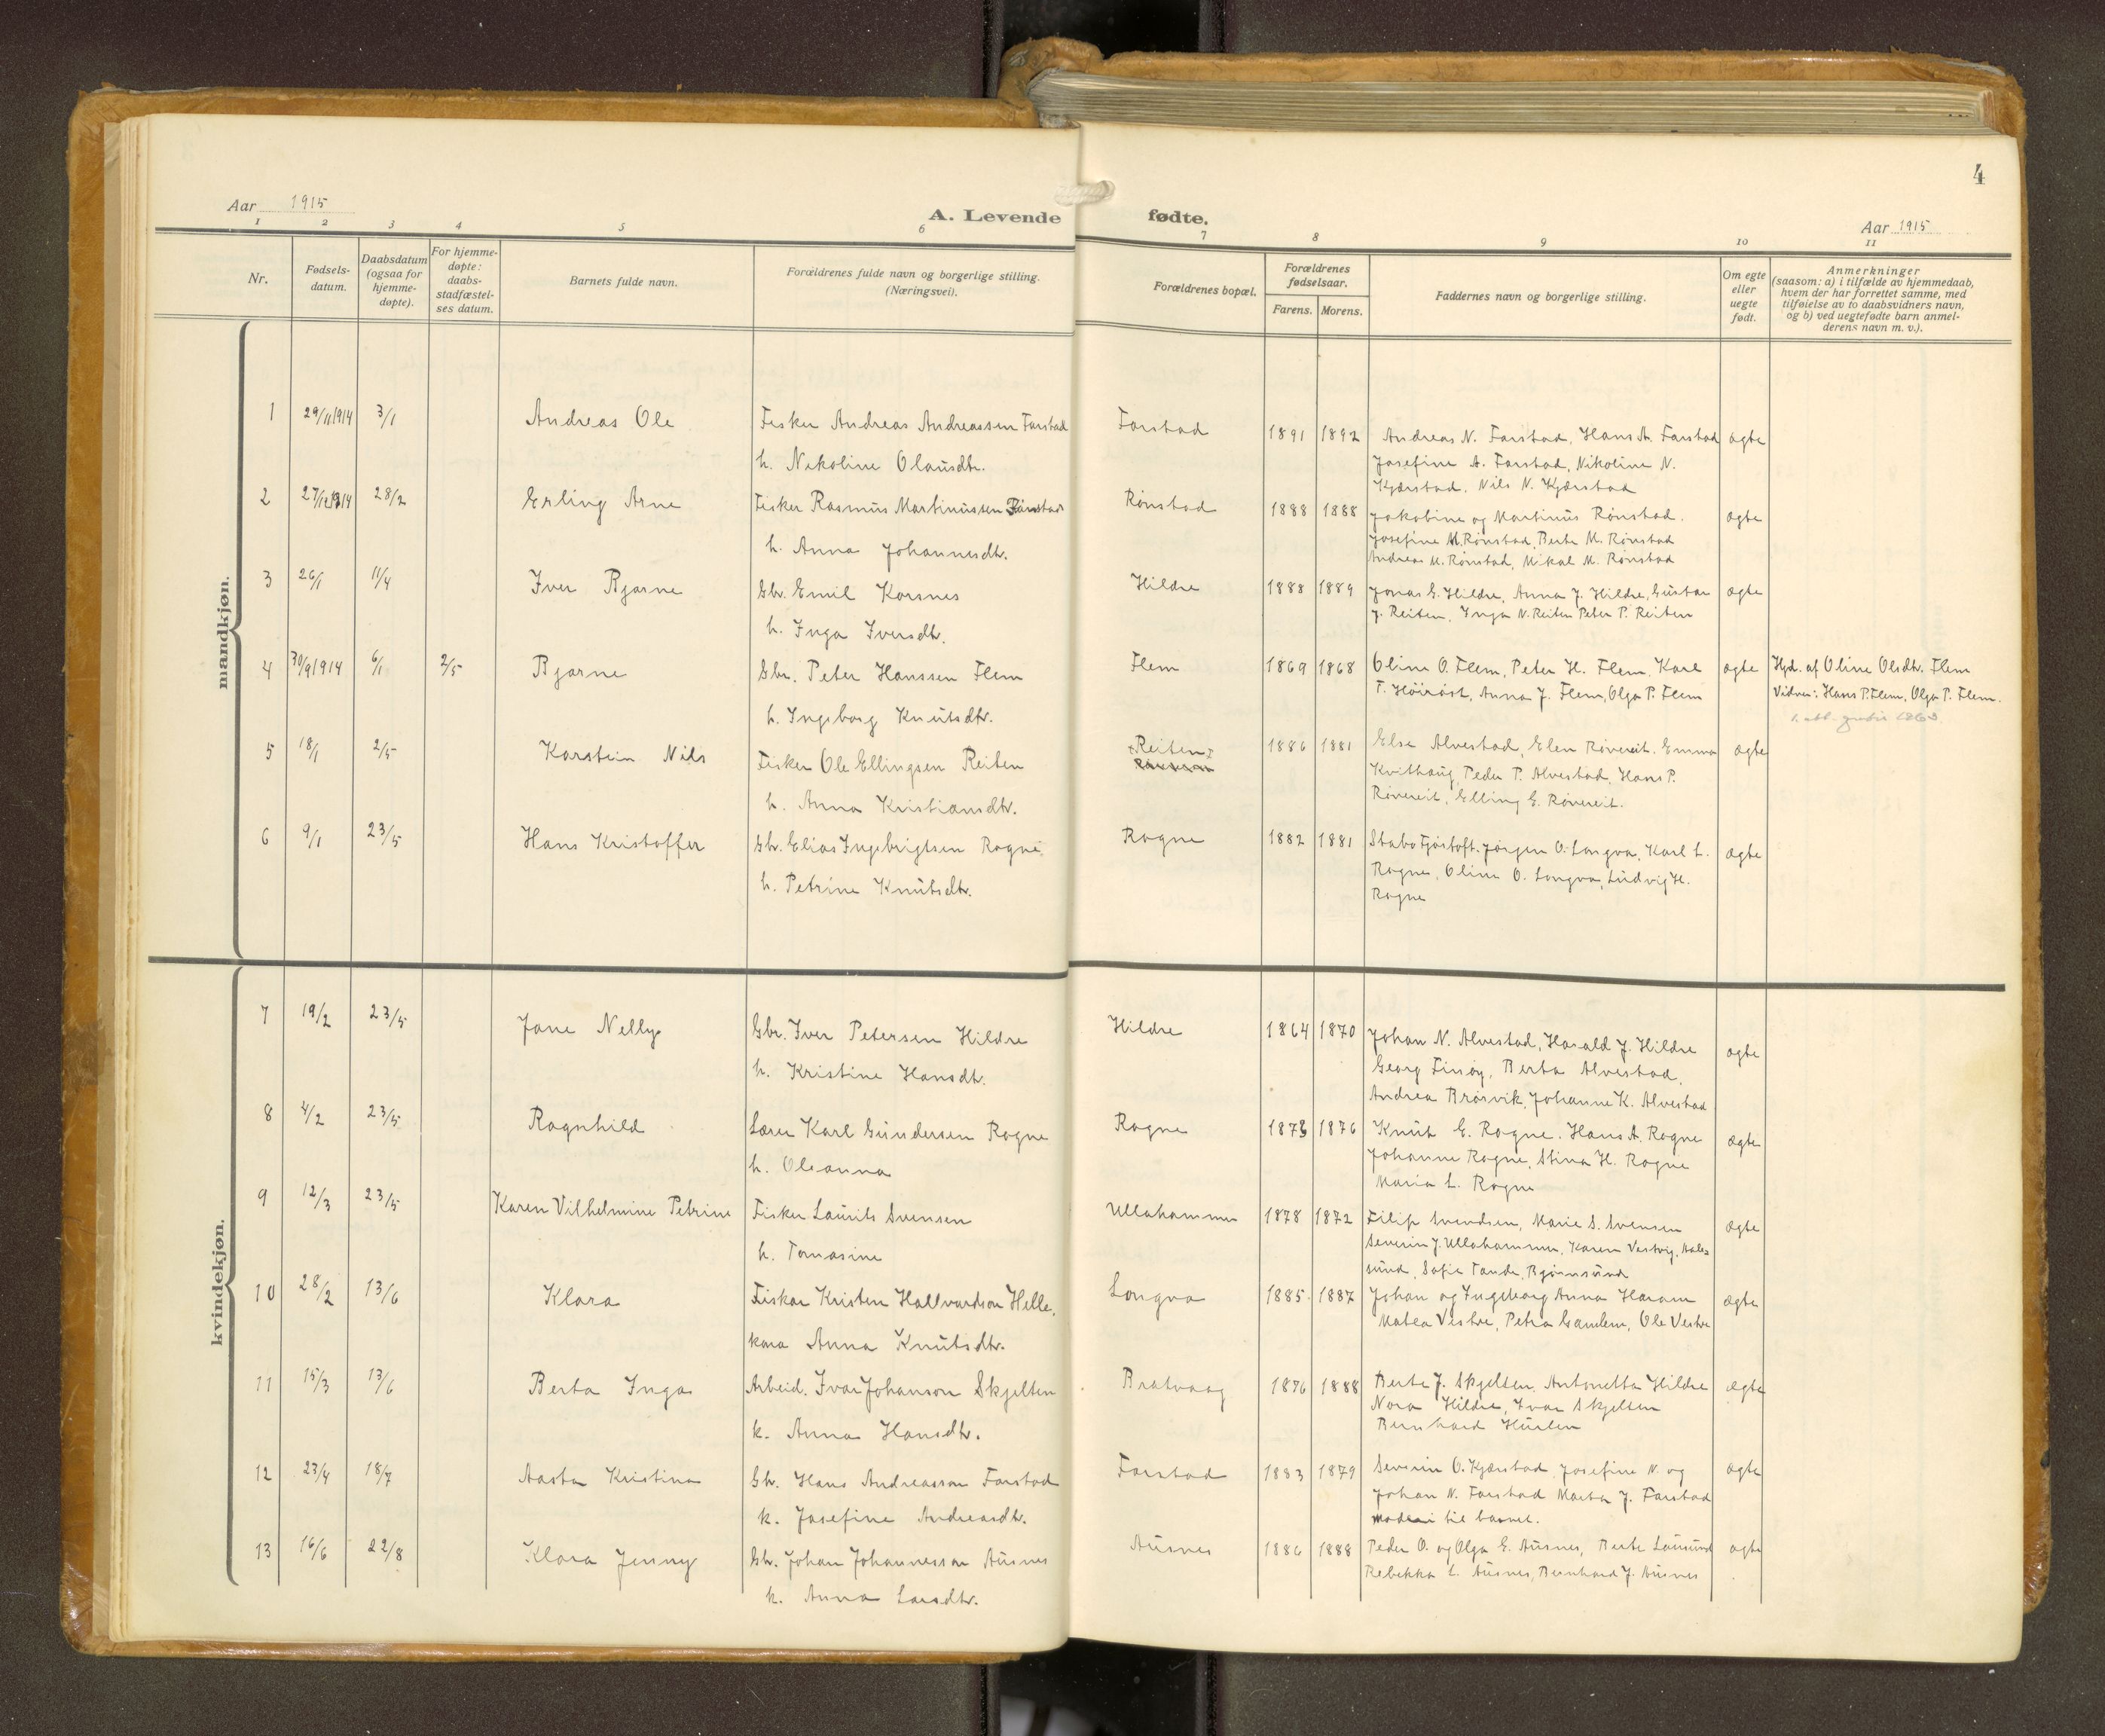 4
Aar 1915
A. Levende fødte.
Aar 1915
1 2 3 4 5 6 7 8 9 10 11
Nr.
Fødsels-
datum.
Daabsdatum
(ogsaa for
hjemme-
døpte).
For hjemme-
døpte:
daabs-
stadfæstel-
ses datum.
Barnets fulde navn.
Forældrenes fulde navn og borgerlige stilling.
(Næringsvei).
Forældrenes bopæl.
Forældrenes
fødselsaar.
Farens. Morens.
Faddernes navn og borgerlige stilling.
Om egte
eller
uegte
født.
Anmerkninger
(saasom: a) i tilfælde av hjemmedaab,
hvem der har forrettet samme, med
tilføielse av to daabsvidners navn,
og b) ved uegtefødte barn anmel-
derens navn m. v.).
mandkjøn.
1 29/11 1914 3/1 Andreas Ole Fisker Andreas Andreassen Farstad Farstad 1891 1892 Andreas N. Farstad, Hans A. Farstad ægte
h. Nikoline Olausdtr. Josefine A. Farstad, Nikoline N.
Kjærstad, Nils N. Kjærstad
2 27/12 1914 28/2 Erling Arne Fisker Rasmus Martinussen Rønstad Rønstad 1888 1888 Jakobine og Martinus Rønstad. ægte
h. Anna Johannesdtr. Josefine M. Rønstad, Berte M. Rønstad
Andreas M. Rønstad, Mikal M. Rønstad
3 26/1 11/4 Iver Bjarne Gbr. Emil Korsnes Hildre 1888 1889 Jonas E. Hildre, Anna J. Hildre, Gustav ægte
h. Inga Iversdtr. J. Reiten, Inga N. Reiten Peter P. Reiten
4 30/9 1914 6/1 2/5 Bjarne Gbr. Peter Hanssen Flem Flem 1869 1868 Oline O. Flem, Peter H. Flem, Karl ægte Hjd. af Oline Olsdtr. Flem
h. Ingeborg Knutsdtr. T. Höiröst, Anna J. Flem, Olga P. Flem Vidner: Hans P. Flem, Olga P. Flem.
5 18/1 2/5 Karstein Nils Fisker Ole Ellingsen Reiten Reiten 1886 1881 Else Alvestad, Elen Røvereit. Emma ægte
h. Anna Kristiansdtr. Kvithaug, Peder P. Alvestad, Hans P.
Røvereit, Elling E. Røvereit.
6 9/1 23/5 Hans Kristoffer Gbr. Elias Ingebrigtsen Rogne Rogne 1882 1881 Fjørtoft. Jørgen O. Longva, Karl L. ægte
h. Petrine Knutsdtr. Rogne, Oline O. Longva, Ludvig H.
Rogne
kvindekjøn.
7 19/2 23/5 Jane Nelly Gbr. Iver Petersen Hildre Hildre 1864 1870 Johan N. Alvestad, Harald J. Hildre ægte
h. Kristine Hansdtr. Georg Finøy, Berta Alvestad,
Andrea Brøsvik, Johanne K. Alvestad
8 4/2 23/5 Ragnhild Lærer Karl Gundersen Rogne Rogne 1873 1876 Knut E. Rogne. Hans A. Rogne ægte
h. Oleanna Johanne Rogne, Stina H. Rogne
Maria L. Rogne
9 12/3 23/5 Karen Vilhelmine Petrine Fisker Laurits Svensen Ullahammen 1878 1872 Filip Svendsen, Marie S. Svensen ægte
h. Tomasine Severin J. Ullahammen, Karen Vestvig, Aale-
sund, Sofie Tande, Bjørnsund
10 28/2 13/6 Klara Fiskar Kristen Hallvardson Helle. Longva 1885 1887 Johan og Ingeborg Anna Haram ægte
kona Anna Knutsdtr. Matea Vestre, Petra Gamlem, Ole Vestre
11 15/3 13/6 Berta Inga Arbeid. Ivar Johanson Skjelten Bratvaag 1876 1888 Berte J. Skjelten. Antonetta Hildre ægte
k. Anna Hansdtr. Nora Hildre, Ivar Skjelten
Bernhard Hurlen
12 23/4 18/7 Aasta Kristina Gbr. Hans Andreasson Farstad Farstad 1883 1879 Severin O. Kjærstad, Josefine N. og ægte
k. Josefine Andreasdtr. Johan N. Farstad Marta J. Farstad
til barnet.
13 16/6 22/8 Klara Jenny Gbr. Johan Johannesson Ausnes Ausnes 1886 1888 Peder O. og Olga E. Ausnes, Berte Lausund ægte
k. Anna Larsdtr. Rebekka L. Ausnes, Bernhard J. Ausnes